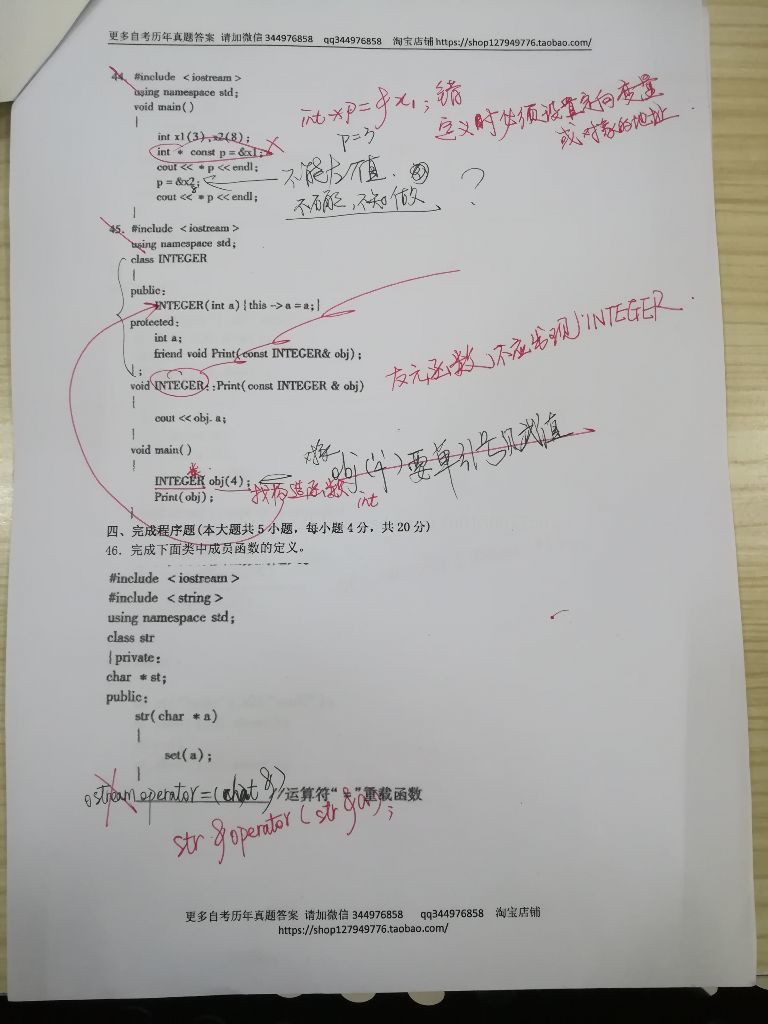 更多自考历年真题答案 请加微信 344976858 qq344976858 淘宝店铺 https://shop127949776.taobao.com/
44. #include <iostream>
using namespace std;
void main()
{
int x1(3),x2(8);
int * const p = &x1;
cout << * p << endl;
p = &x2;
cout << * p << endl;
}
int *p = & x1; 错
p=3
定义时必须设置定向变量
或对象的地址
不能为值.
不知做 ?
45. #include <iostream>
using namespace std;
class INTEGER
{
public:
INTEGER(int a){this -->a = a;}
protected:
int a;
friend void Print(const INTEGER& obj);
};
void INTEGER::Print(const INTEGER & obj)
{
cout << obj. a;
}
友元函数,不应出现 INTEGER
void main()
{
INTEGER obj(4);
Print(obj);
}
obj(4) 要单引号赋值
找构造函数 int
四、完成程序题(本大题共 5 小题，每小题 4 分，共 20 分)
46. 完成下面类中成员函数的定义。
#include <iostream>
#include <string>
using namespace std;
class str
{private:
char * st;
public:
str(char * a)
{
set(a);
}
ostream operator=( &) //运算符“=”重载函数
str & operator (str &a);
更多自考历年真题答案 请加微信 344976858 qq344976858 淘宝店铺
https://shop127949776.taobao.com/